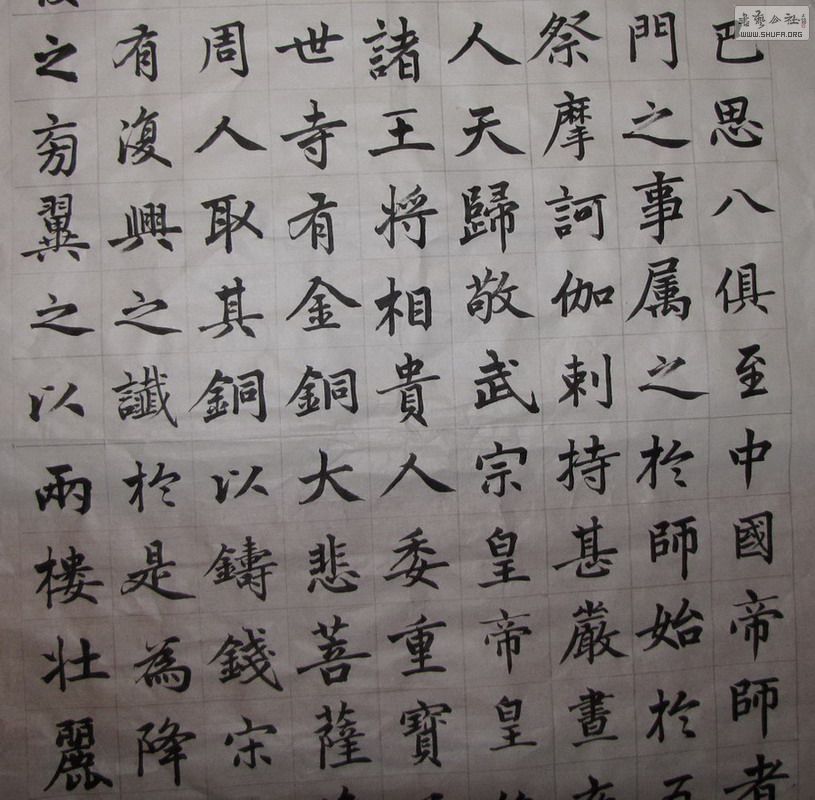 巴思八俱至中國帝師者
門之事属之於師始於五
祭摩訶伽剌持甚嚴晝夜
人天歸敬武宗皇帝皇
諸王將相貴人委重寶
世寺有金銅大悲菩薩
周人取其銅以鑄錢宋
有復興之讖於是為降
之旁翼之以兩樓壯麗
书艺公社
WWW.SHUFA.ORG